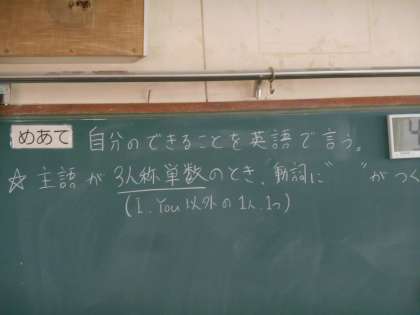 めあて 自分のできることを英語で言う。
☆ 主語が 3人称単数のとき、動詞に" "がつく
(I, You 以外の1人、1つ)